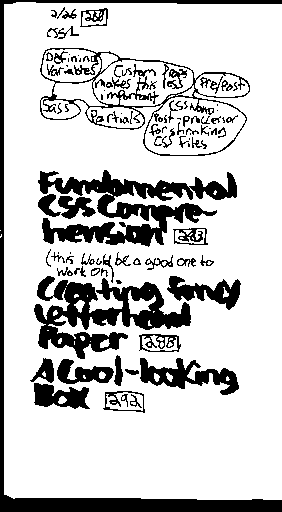 2/26 280
CSS/L
Defining Variables
Custom Props makes this less important
Pre/Post
Sass
Partials
CSSNano: Post-processor for shrinking CSS Files
Fundamental
CSS Compre-
hension 283
(this would be a good one to
work on)
Creating Fancy
Letterhead
Paper 288
A Cool-looking
Box 292